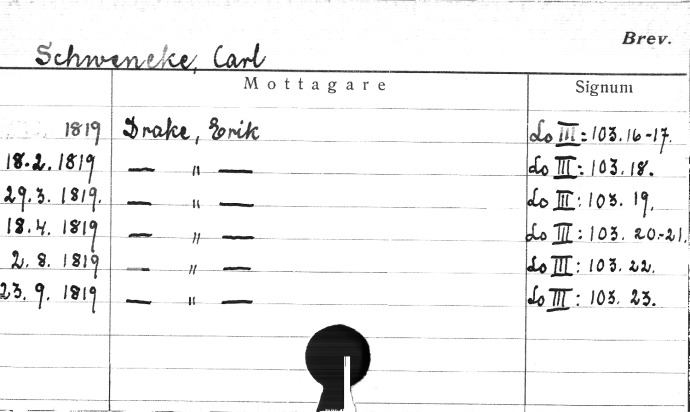 Brev.
Schweneke, Carl
Mottagare Signum
1819 Drake, Erik Lo III: 103.16-17.
18.2.1819 — " — Lo III: 103.18.
29.3.1819. — " — Lo III: 103.19.
18.4.1819 — " — Lo III: 103.20-21.
2.8.1819 — " — Lo III: 103.22.
23.9.1819 — " — Lo III: 103.23.